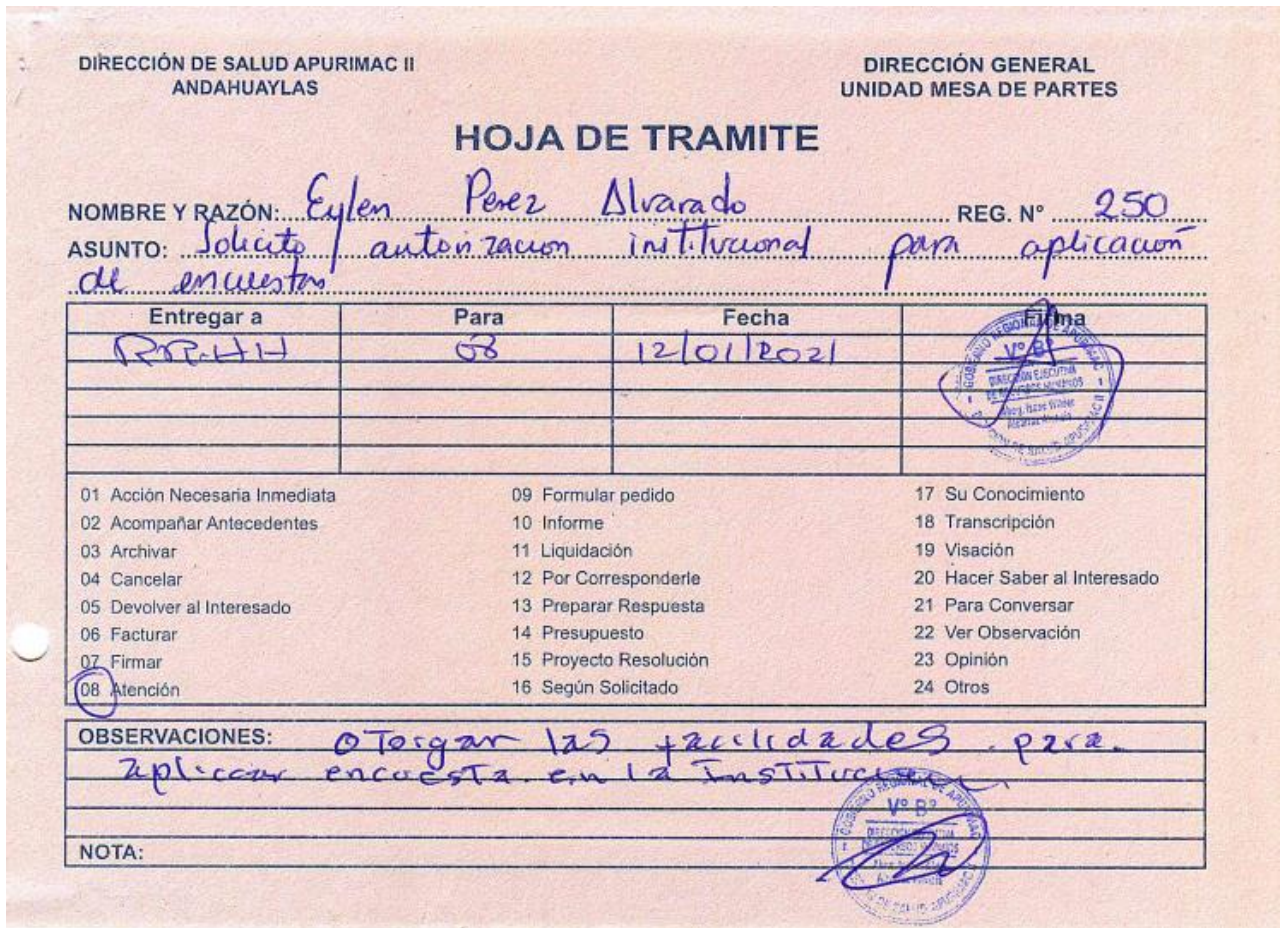 DIRECCIÓN DE SALUD APURIMAC II
ANDAHUAYLAS
DIRECCIÓN GENERAL
UNIDAD MESA DE PARTES
HOJA DE TRAMITE
NOMBRE Y RAZÓN: Eylen Perez Alvarado REG. Nº 250
ASUNTO: Solicito autorizacion institucional para aplicación
de encuestas
Entregar a Para Fecha Firma
RR.HH 08 12/01/2021
GOBIERNO REGIONAL DE APURIMAC
Vº Bº
DIRECCIÓN EJECUTIVA
DE RECURSOS HUMANOS
DIRECCION DE SALUD APURIMAC II
01 Acción Necesaria Inmediata
02 Acompañar Antecedentes
03 Archivar
04 Cancelar
05 Devolver al Interesado
06 Facturar
07 Firmar
08 Atención
09 Formular pedido
10 Informe
11 Liquidación
12 Por Corresponderle
13 Preparar Respuesta
14 Presupuesto
15 Proyecto Resolución
16 Según Solicitado
17 Su Conocimiento
18 Transcripción
19 Visación
20 Hacer Saber al Interesado
21 Para Conversar
22 Ver Observación
23 Opinión
24 Otros
OBSERVACIONES: otorgar las facilidades para
aplicar encuesta en la Institución
GOBIERNO REGIONAL DE APURIMAC
Vº Bº
DIRECCIÓN EJECUTIVA
DE RECURSOS HUMANOS
DE SALUD APURIMAC II
NOTA: